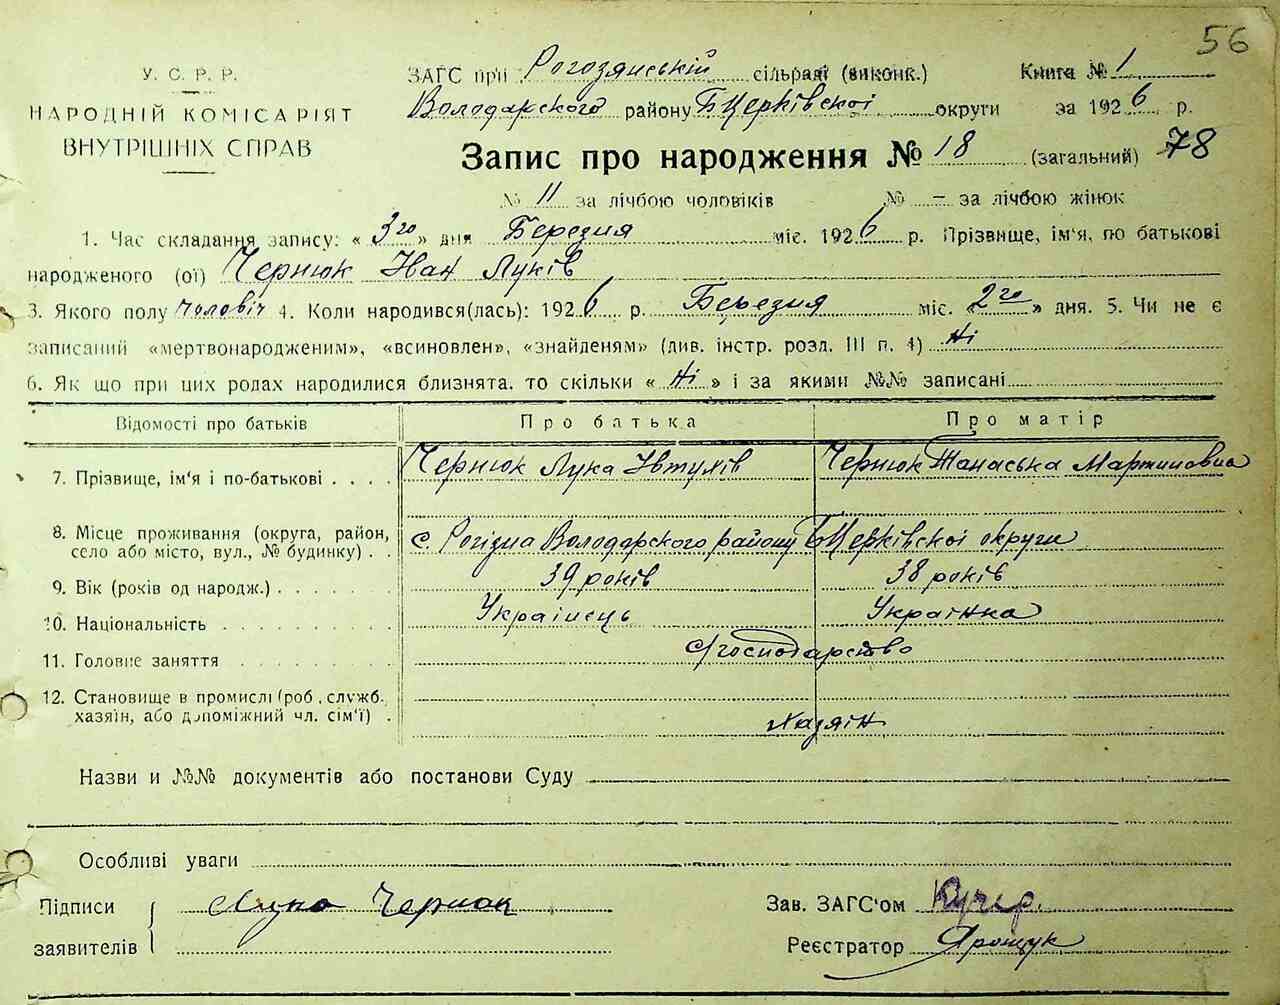 56
У. С. Р. Р.
НАРОДНІЙ КОМІСАРІЯТ
ВНУТРІШНІХ СПРАВ
ЗАГС при Рогозянській сільраді (виконк.) Книга № 1
Володарского району БЦерківскоі округи за 1926 р.
Запис про народження № 18 (загальний) 78
№ 11 за лічбою чоловіків № – за лічбою жінок
1. Час складання запису: « 3го » дня Березня міс. 1926 р. Прізвище, ім'я, по батькові
народженого (ої) Чернюк Іван Луків
3. Якого полу чоловіч 4. Коли народився(лась): 1926 р. Березня міс. «2го» дня. 5. Чи не є
записаний «мертвонародженим», «всиновлен», «знайденям» (див. інстр. розд. III п. 4) Ні
6. Як що при цих родах народилися близнята, то скільки « Ні » і за якими №№ записані
Відомості про батьків Про батька Про матір
7. Прізвище, ім'я і по-батькові . . . . Чернюк Лука Івтухів Чернюк Танаська Мартиновна
8. Місце проживання (округа, район,
село або місто, вул., № будинку) . . с. Рогізна Володарского району БЦерківскоі округи
9. Вік (років од народж.) . . . . . . . 39 років 38 років
10. Національність . . . . . . . . . . Украінець Украінка
11. Головне заняття . . . . . . . . . Господарство
12. Становище в промислі (роб., служб.
хазяїн, або допоміжний чл. сім'ї) . Хазяін
Назви и №№ документів або постанови Суду
Особливі уваги
Підписи Лука Чернюк Зав. ЗАГС'ом Кучер.
заявителів Реєстратор Ярощук